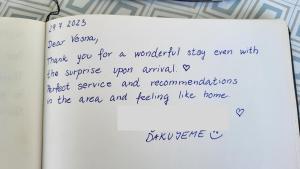 29.7.2023
Dear Vesna,
Thank you for a wonderful stay even with
the surprise upon arrival. ♡
Perfect service and recommendations
in the area and feeling like home
♡
ĎAKUJEME ☺